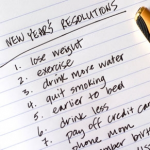 NEW YEAR'S RESOLUTIONS
1. lose weight
2. exercise
3. drink more water
4. quit smoking
5. earlier to bed
6. drink less
7. pay off credit car
phone mom